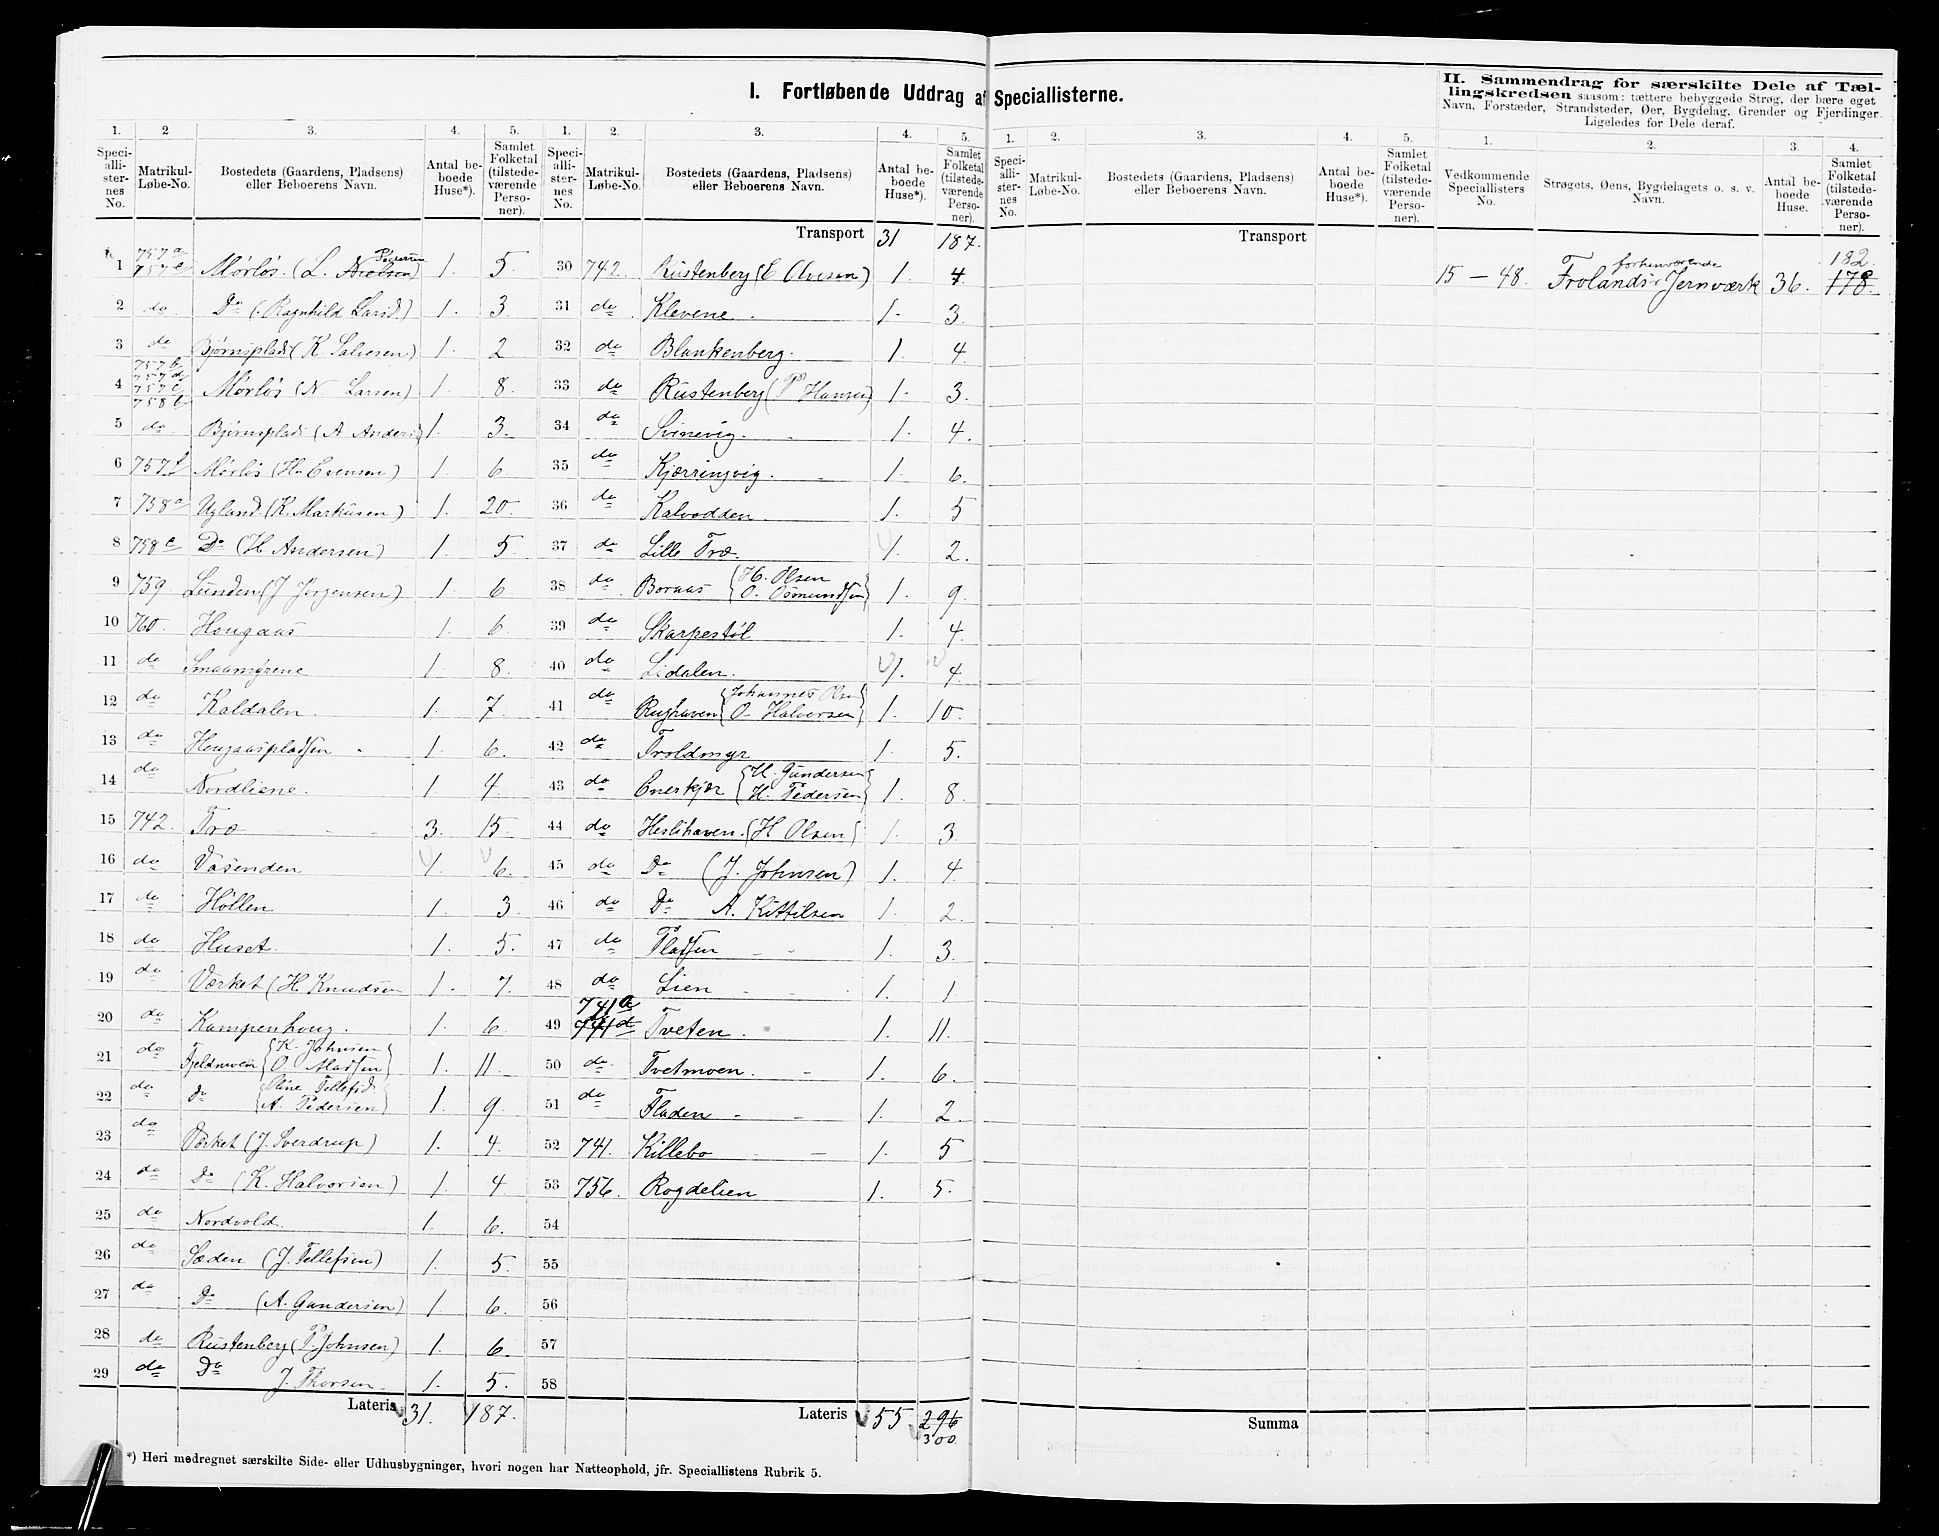 I. Fortløbende Uddrag af Speciallisterne.
II. Sammendrag for særskilte Dele af Tællingskredsen saasom: tættere bebyggede Strøg, der bære eget
Navn, Forstæder, Strandsteder, Øer, Bygdelag, Grender og Fjerdinger.
Ligeledes for Dele deraf.
1. 2 3. 4. 5. 1. 2. 3. 4. 5. 1. 2. 3. 4. 5. 1. 2. 3. 4.
Speciallisternes No. Matrikul-Løbe-No. Bostedets (Gaardens, Pladsens) eller Beboerens Navn. Antal beboede Huse*). Samlet Folketal (tilstedeværende Personer).
Speciallisternes No. Matrikul-Løbe-No. Bostedets (Gaardens, Pladsens) eller Beboerens Navn. Antal beboede Huse*). Samlet Folketal (tilstedeværende Personer).
Speciallisternes No. Matrikul-Løbe-No. Bostedets (Gaardens, Pladsens) eller Beboerens Navn. Antal beboede Huse*). Samlet Folketal (tilstedeværende Personer).
Vedkommende Speciallisters No. Strøgets, Øens, Bygdelagets o. s. v. Navn. Antal beboede Huse. Samlet Folketal (tilstedeværende Personer).
1 757a 757e Mørløs. (L. Nielsen Pedersen) 1. 5.
2 do Do (Ragnhild Larsd) 1. 3.
3 do Bjørnsplads (K. Salvesen) 1. 2
4 757b 757d 757c 758b Mørløs (N Larsen) 1. 8.
5 do Bjørnsplads (A Anders) 1. 3.
6 757f Mørløs (H. Evensen) 1. 6.
7 758a Ugland (K. Markusen) 1. 20.
8 758c Do (H Andersen) 1. 5.
9 759 Lunden (J Jørgensen) 1. 6
10 760. Hougaas 1. 6.
11 do Smaamyrene 1. 8.
12 do Kaldalen. 1. 7.
13 do Hougaaspladsen 1. 6.
14 do Nordliene. 1. 4.
15 742. Træ 3. 15.
16 do Vasenden 1. 6.
17 do Høllen. 1. 3.
18 do Huset. 1. 5.
19 do Værket (H. Knudsen 1. 7.
20 do Kampenhoug. 1. 6.
21 do Fjeldmoen {K. Johnsen O. Madsen} 1. 11.
22 do Do {Oline Tellefsd. A. Pedersen} 1. 9.
23 do Værket (J. Sverdrup) 1. 4.
24 do Do (K. Halvorsen) 1. 4
25 do Nordvold. 1. 6.
26 do Sæden (J. Tellefsen) 1. 5.
27 do Do (A. Gundersen) 1. 6.
28 do Rustenberg (P. Johnsen) 1. 6.
29 do Do J. Thorsen. 1. 5.
Lateris 31. 187.
Transport 31 187.
30 742. Rustenberg (E Olsen) 1. 4.
31 do Klevene. 1. 3.
32 do Blankenberg. 1. 4.
33 do Rustenberg (P Hansen) 1. 3.
34 do Svinevig. 1. 4.
35 do Kjærringvig. 1. 6.
36 do Kalvodden. 1. 5
37 do Lille Træ. 1. 2.
38 do Boraas {H. Olsen O. Osmundsen} 1. 9.
39 do Skarpestøl 1. 4.
40 do Lidalen. 1. 4.
41 do Rughaven {Johannes Olsen O. Halvorsen} 1. 10.
42 do Troldmyr 1. 5.
43 do Enerkjær {H. Gundersen H. Pedersen} 1. 8.
44 do Heslihaven. (H Olsen) 1. 3.
45 do Do (J. Johnsen) 1. 4.
46 do Do A. Kittilsen 1. 2.
47 do Pladsen 1. 3.
48 do Lien 1. 1.
49 741a 741d Tveten. 1. 11.
50 do Tvetmoen. 1. 6.
51 do Fladen 1. 2.
52 741. Killebo 1. 5
53 756. Rogdelien 1. 5.
54
55
56
57
58
Lateris 55 296
300
Transport
15 — 48. forhenværende Frolands Jernværk 36. 182. 178.
Summa
*) Heri medregnet særskilte Side- eller Udhusbygninger, hvori nogen har Natteophold, jfr. Speciallistens Rubrik 5.